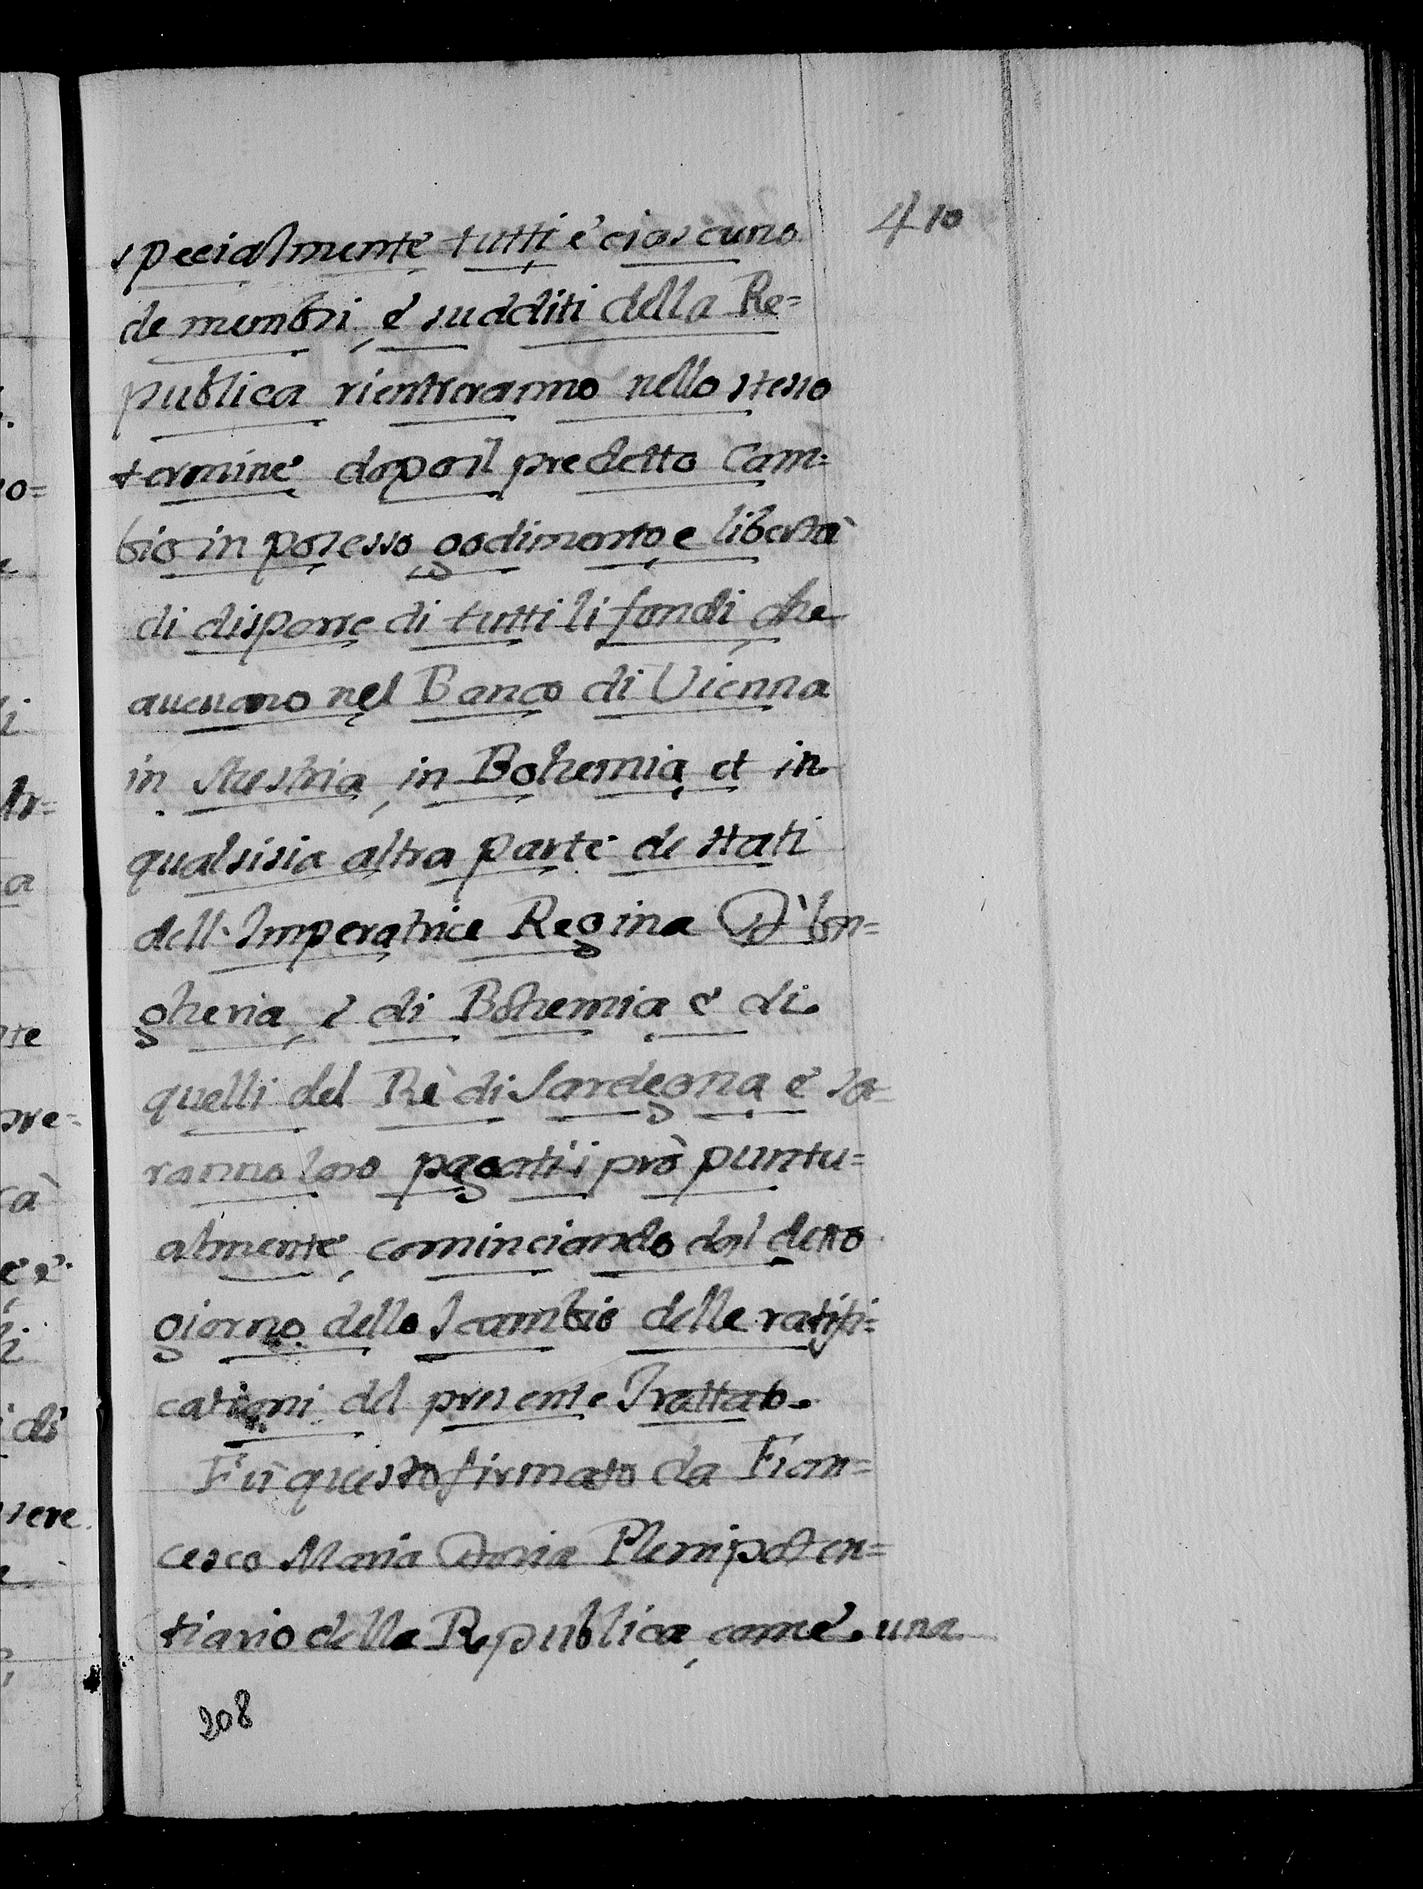 410
specialmente tutti è ciascuno
de membri, è sudditi della Re=
publica rientreranno nello stesso
termine dopo il predetto Cam=
bio in posesso godimento e libertà
di disporre di tutti li fondi, che
aueuano nel Banco di Uienna
in Austria, in Bohemia, et in
qualsisia altra parte de stati
dell'Imperatrice Regina D'Vn=
gheria, è di Bohemia è di
quelli del Rè di Sardegna è sa=
ranno loro pagati i prò puntu=
almente, cominciando dal detto
giorno dello Scambio delle ratifi=
cationi del presente Trattato.
Fù questo firmato da Fran=
cesco Maria Doria Plenipoten=
tiario della Republica, come una
208